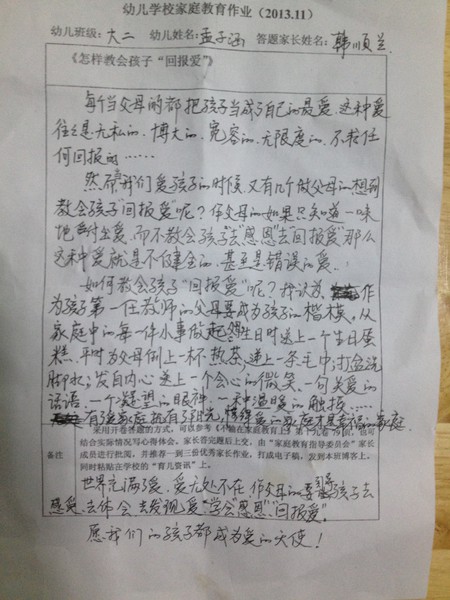 幼儿学校家庭教育作业（2013.11）
幼儿班级：大二 幼儿姓名：孟子涵 答题家长姓名：韩顺兰
《怎样教会孩子“回报爱”》
每个当父母的都把孩子当成了自己的最爱，这种爱
往往是无私的、博大的、宽容的、无限度的、不求任
何回报的……
然而我们爱孩子的时候，又有几个做父母的想到
教会孩子“回报爱”呢？作父母的如果只知道一味
地付出爱，而不教会孩子去“感恩”去“回报爱”那么
这种爱就是不健全的，甚至是错误的爱。
如何教会孩子“回报爱”呢？我认为 作
为孩子第一任教师的父母要成为孩子的楷模。从
家庭中的每一件小事做起 生日时送上一个生日蛋
糕、平时为父母倒上一杯热茶，递上一条毛巾，打盆洗
脚水，发自内心送上一个会心的微笑、一句关爱的
话语、一个凝望的眼神、一种温暖的触摸……
有 家庭就有了阳光， 爱的家庭才是幸福的家庭
采用开卷答题的方式，可以参考《不输在家庭教育上》第 册，也可
结合实际情况写心得体会。家长答完题后上交，由“家庭教育指导委员会”家长
备注 成员进行批阅，并推荐一到三份优秀家长作业，打成电子稿，发到本班博客上，
同时粘贴在学校的“育儿资讯”上。
世界充满了爱，爱无处不在，作父母的要引导孩子去
感受、去体会、去发现爱“学会”感恩”“回报爱”。
愿我们的孩子都成为爱的天使！